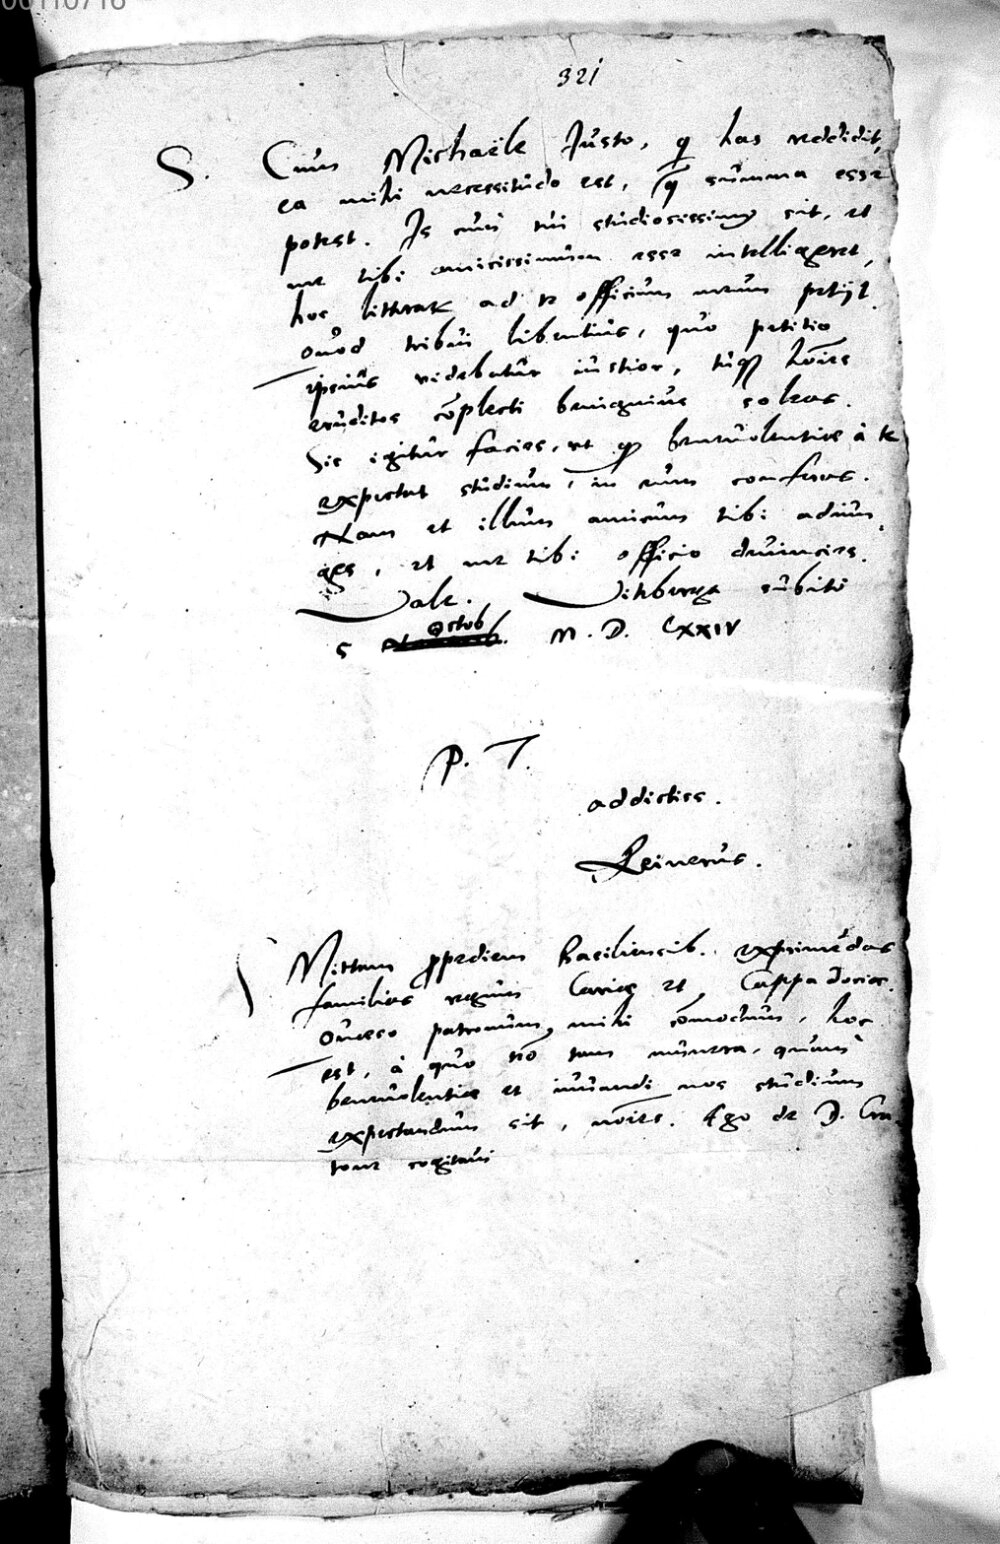 00110716
321
S. Cum Michaële Justo, q has reddidit,
ea mihi necessitudo est, q̃ summa esse
potest. Is cum tui studiosissimꝰ sit, et
me tibi amicissimum esse intelligeret,
hoc litterar ad te officium meum petijt.
Quod tribui libentius, quo petitio
ipsius videbatur iustior, tuqꝫ hōies
eruditos cōplecti benignius soleas.
Sic igitur facies, ut q benevolentiae à te
expectat studium, in eum conferas.
Nam et illum amicum tibi adiun-
ges, et me tibi officio devincies.
Vale. Vitebergae subitò
5 Octob. M. D. LXXIV
P. T.
addictiss.
Reinerus.
Mittam propediem Basiliensib. exprimēdas
familias regum Cariae et Cappadociae.
Quaero patronum mihi cōmodum, hoc
est, à quo nō tam munera, quam
benevolentiae et iuvandi nos studium
expectandum sit, moīes. Ego de D. Cra-
tone cogitavi